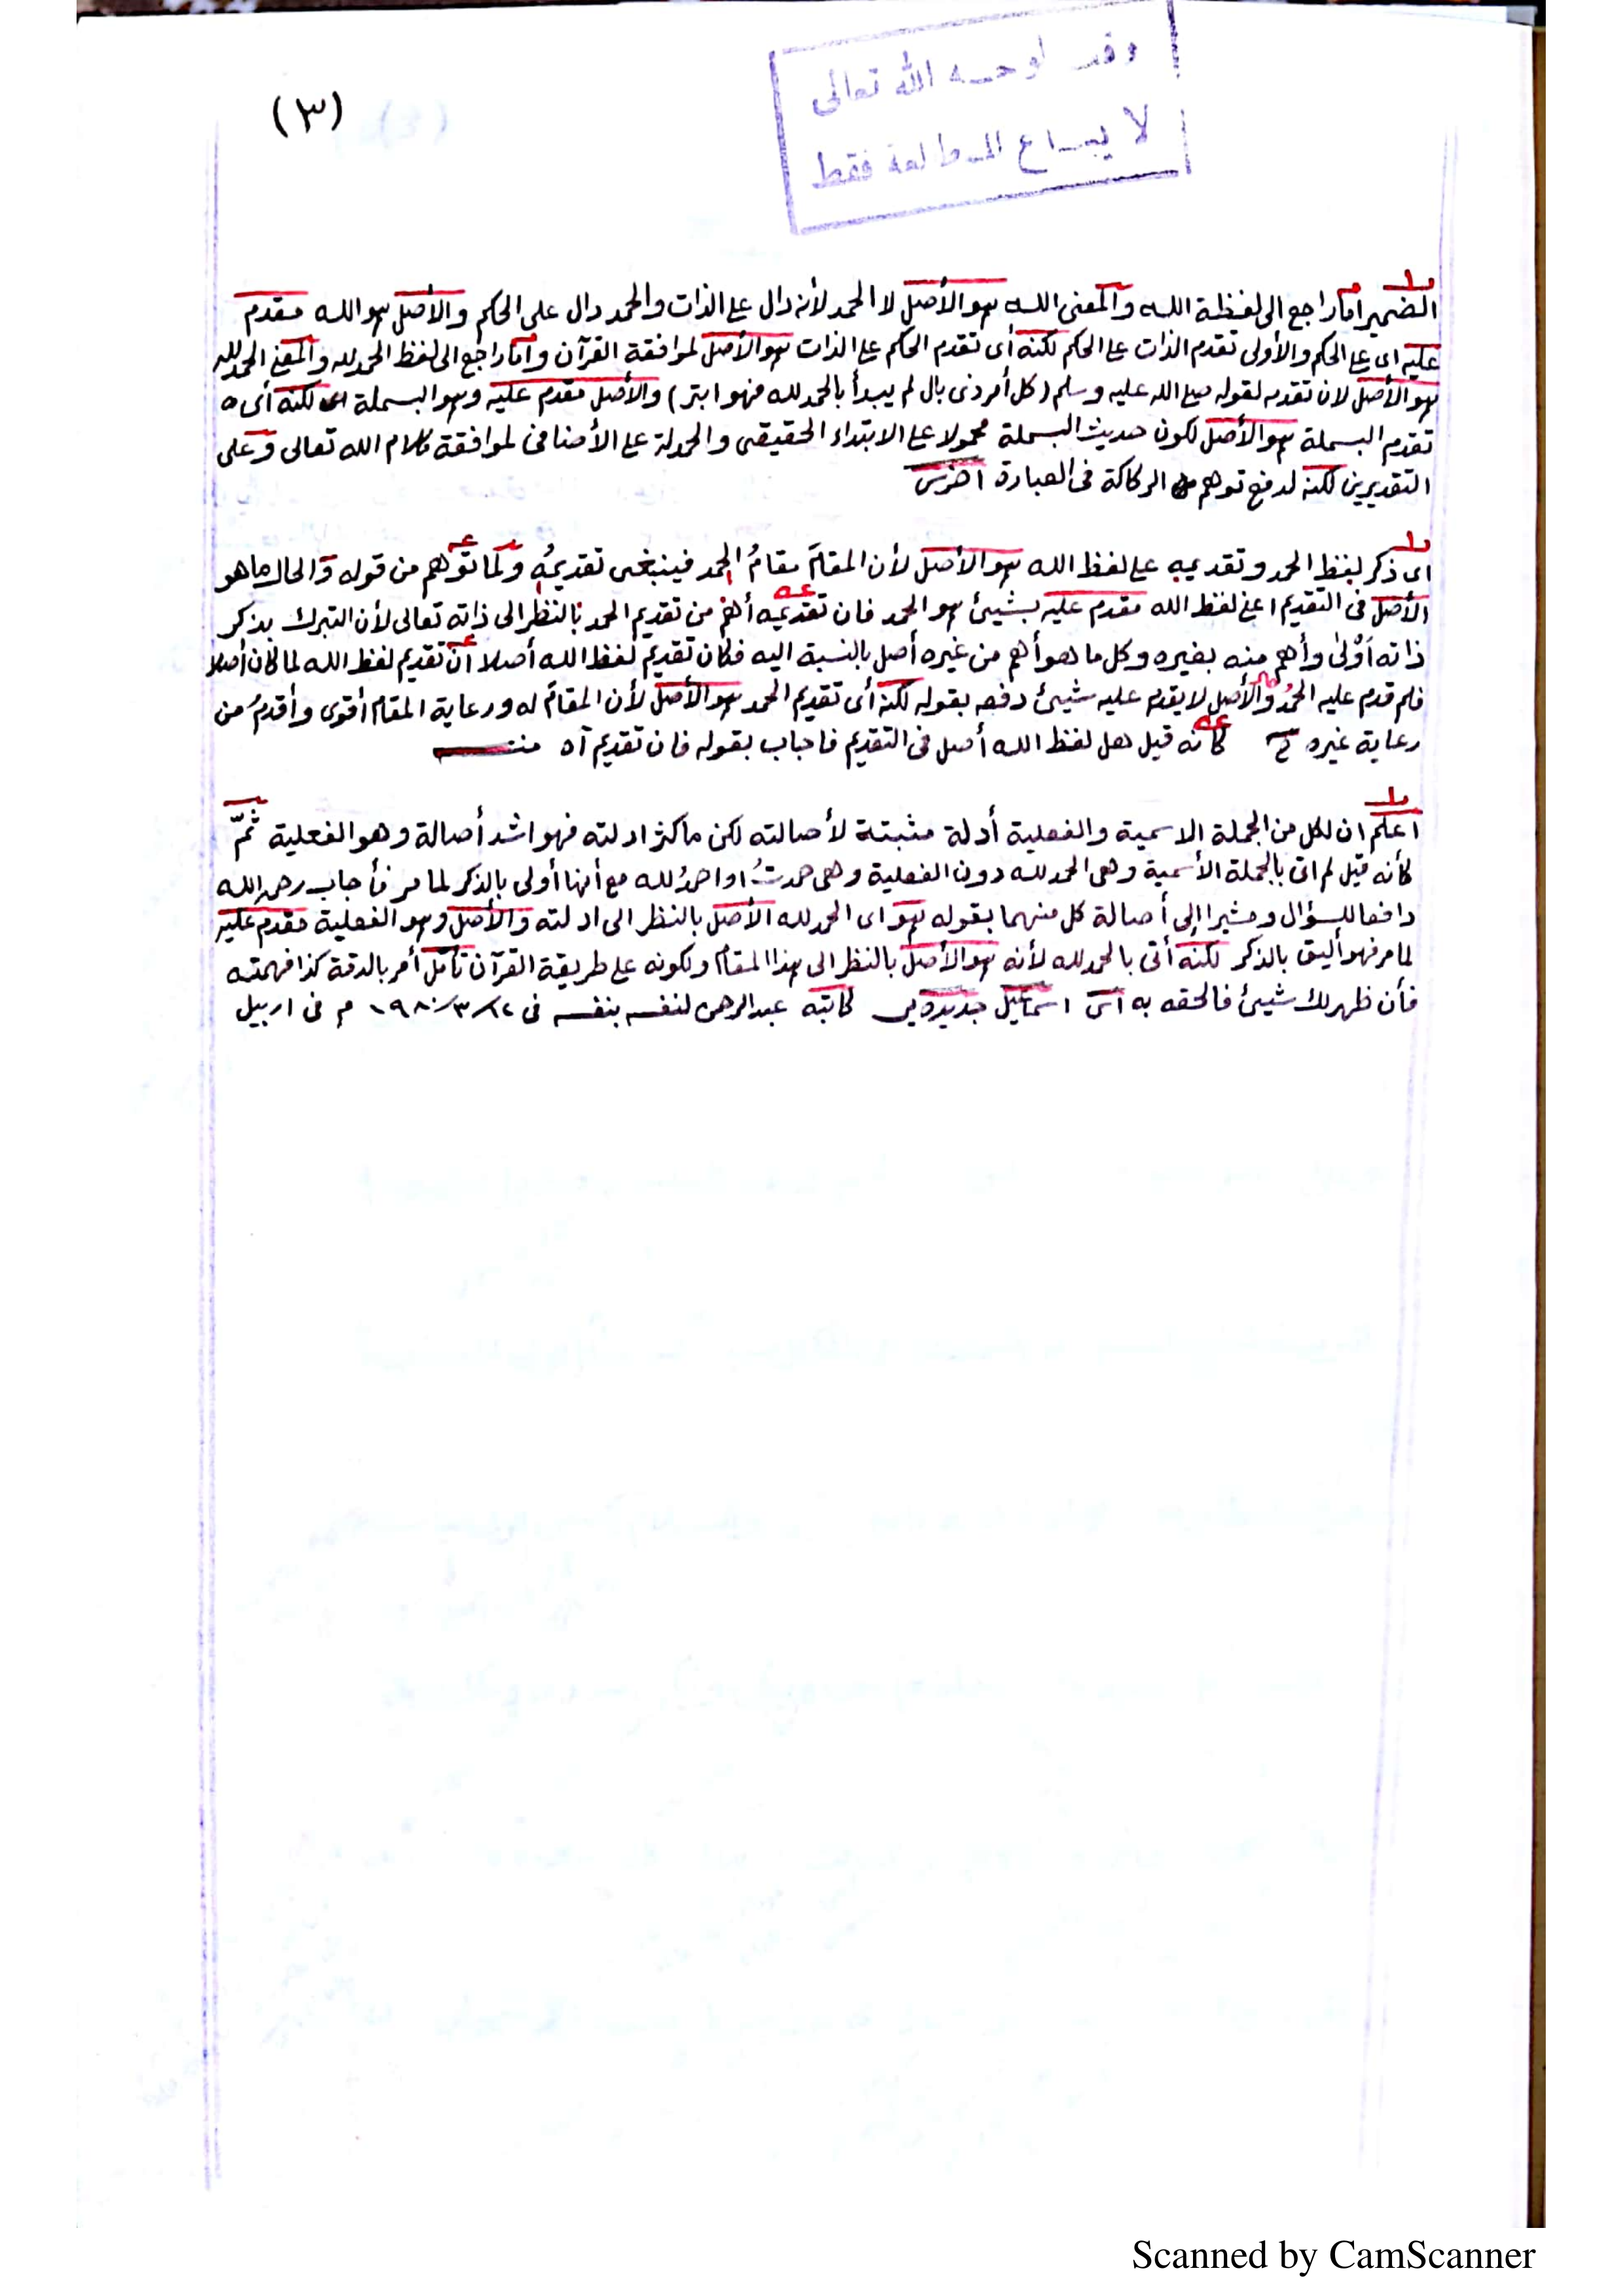 وقف لوجه الله تعالى
لا يباع المطالعة فقط
(٣)
الضمير اما راجع الى لفظة الله والمعنى الله هو الأصل لا الحمد لأنه دال على الذات والحمد دال على الحكم والأصل هو الله مقدم
عليه اى على الحكم والأولى تقدم الذات على الحكم لكنه أى تقدم الحكم على الذات هو الأصل لموافقة القرآن وأما راجع الى لفظ الحمد لله والمعنى الحمد لله
هو الأصل لان تقدمه لقوله صلى الله عليه وسلم (كل أمر ذى بال لم يبدأ بالحمد لله فهو ابتر) والأصل مقدم عليه وهو البسملة لكنه أى
تقدم البسملة هو الأصل لكون حديث البسملة محمولا على الابتداء الحقيقى والحمدلة على الأضافى لموافقة كلام الله تعالى وعلى
التقديرين لكنه لدفع توهم الركاكة فى العبارة
اى ذكر لفظ الحمد وتقديمه على لفظ الله هو الأصل لأن المقامَ مقامُ الحمد فينبغى تقديمُه ولما توهم من قوله والحال ما هو
الأصل فى التقديم اعنى لفظ الله مقدم عليه بشيئ هو الحمد فان تقديمه أهم من تقديم الحمد بالنظر الى ذاته تعالى لأن التبرك بذكر
ذاته أوْلى وأهم منه بغيره وكل ما هو أهم من غيره أصل بالنسبة اليه فكان تقديم لفظ الله أصلا أن تقديم لفظ الله لما كان أصلا
فلم قدم عليه الحمدُ والأصل لا يقدم عليه شيئ دفعه بقوله لكنه أى تقديم الحمد هو الأصل لأن المقامَ له ورعاية المقام أقوى وأقدمُ من
رعاية غيره كأنه قيل هل لفظ الله أصل فى التقديم فاجاب بقوله فان تقديم آه منه
اعلم ان لكل من الجملة الاسمية والفعلية أدلة مثبتة لأصالته لكن ما كثر ادلته فهو اشد أصالة وهو الفعلية ثمّ
كأنه قيل لم اتى بالجملة الأسمية وهى الحمد لله دون الفعلية وهى حمدتُ او احمدُ لله مع أنها أولى بالذكر لما مر فأجاب رحمه الله
دافعا للسؤال ومشيرا إلى أصالة كل منهما بقوله هو اى الحمد لله الأصل بالنظر الى ادلته والأصل وهو الفعلية مقدم عليه
لما مر فهو أليق بالذكر لكنه أتى بالحمد لله لأنه هو الأصل بالنظر الى هذا المقام ولكونه على طريقة القرآن تأمّل أمر بالدقة كذا فهمته
فأن ظهر لك شيئ فالحقه به اسماعيل جديدەيى كاتبه عبد الرحمن لنفسه بنفسه فى ١٩٨٠/٣/١٢ م فى اربيل
Scanned by CamScanner